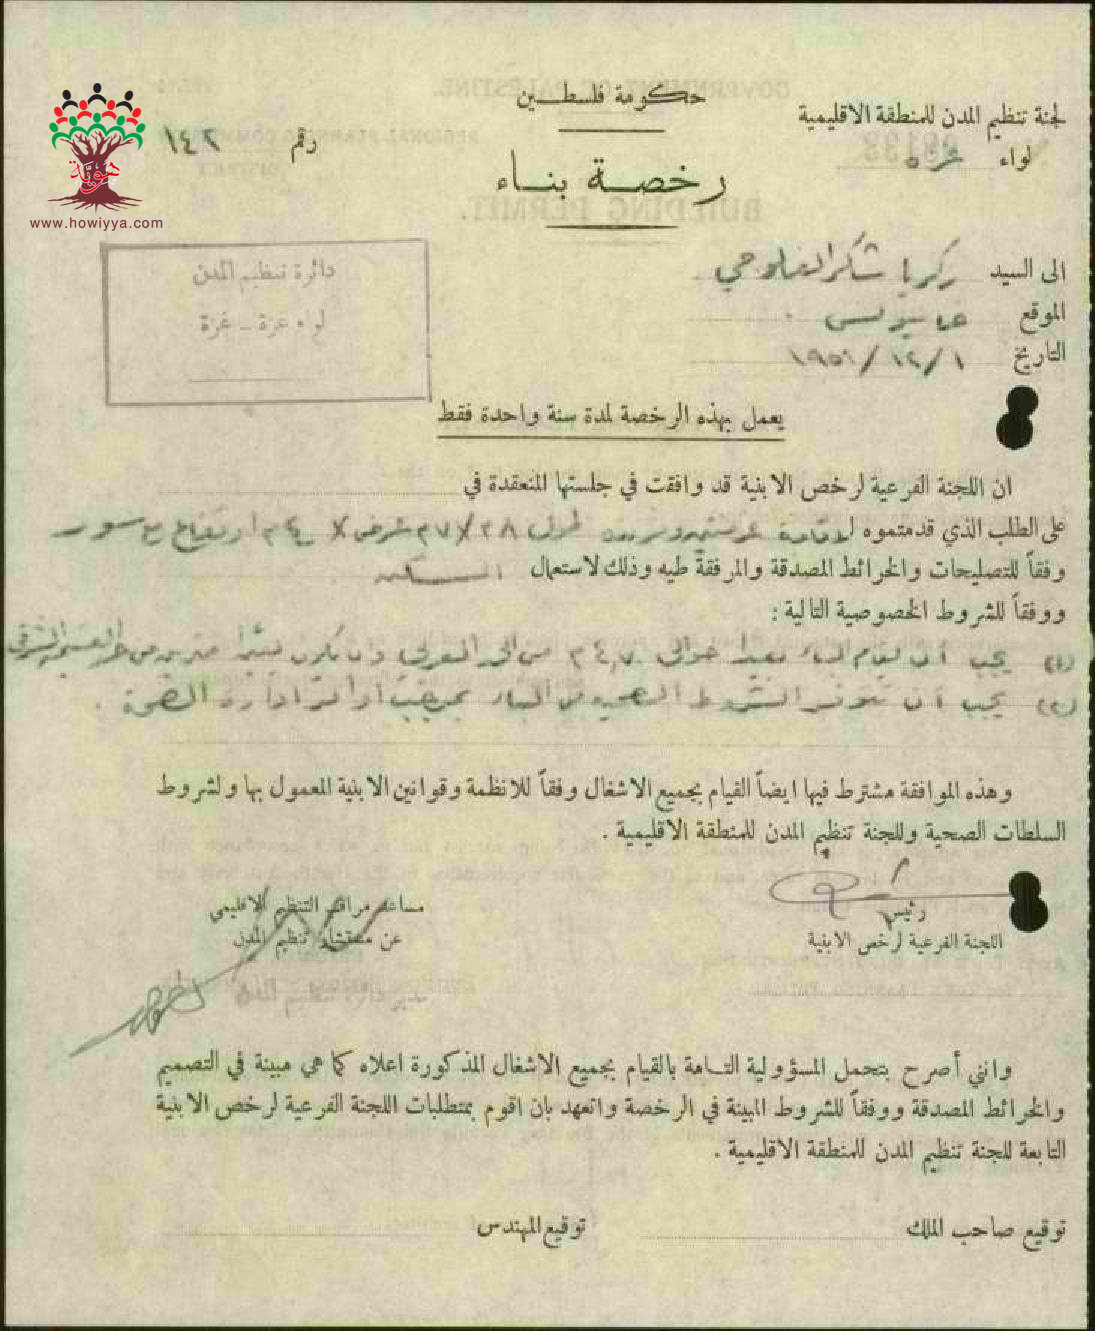 حكومة فلسطين
لجنة تنظيم المدن للمنطقة الاقليمية
لواء غزه
رقم ١٤٢
رخصة بناء
هوية
www.howiyya.com
دائرة تنظيم المدن
لواء غزة - غزة
الى السيد زكريا شاكر الفلوجي
الموقع خان يونس
التاريخ ١ / ١٢ / ١٩٥١
يعمل بهذه الرخصة لمدة سنة واحدة فقط
ان اللجنة الفرعية لرخص الابنية قد وافقت في جلستها المنعقدة في
على الطلب الذي قدمتموه لاقامة طول ٣٨ / ٢٧ عرض ارتفاع مع سور
وفقاً للتصليحات والخرائط المصدقة والمرفقة طيه وذلك لاستعمال السكن
ووفقاً للشروط الخصوصية التالية :
(١) يجب أن يقام البناء بعيدا حوالي من الحد الغربي وان يكون
(٢) يجب أن تتوفر الشروط الصحية في البناء بموجب أوامر ادارة الصحة .
وهذه الموافقة مشترط فيها ايضاً القيام بجميع الاشغال وفقاً للانظمة وقوانين الابنية المعمول بها ولشروط
السلطات الصحية وللجنة تنظيم المدن للمنطقة الاقليمية .
رئيس
اللجنة الفرعية لرخص الابنية
مساعد مراقب التنظيم الاقليمي
عن مستشار تنظيم المدن
مدير دائرة تنظيم المدن
وانني أصرح بتحمل المسؤولية التامة بالقيام بجميع الاشغال المذكورة اعلاه كما هي مبينة في التصميم
والخرائط المصدقة ووفقاً للشروط المبينة في الرخصة واتعهد بان اقوم بمتطلبات اللجنة الفرعية لرخص الابنية
التابعة للجنة تنظيم المدن للمنطقة الاقليمية .
توقيع صاحب الملك
توقيع المهندس